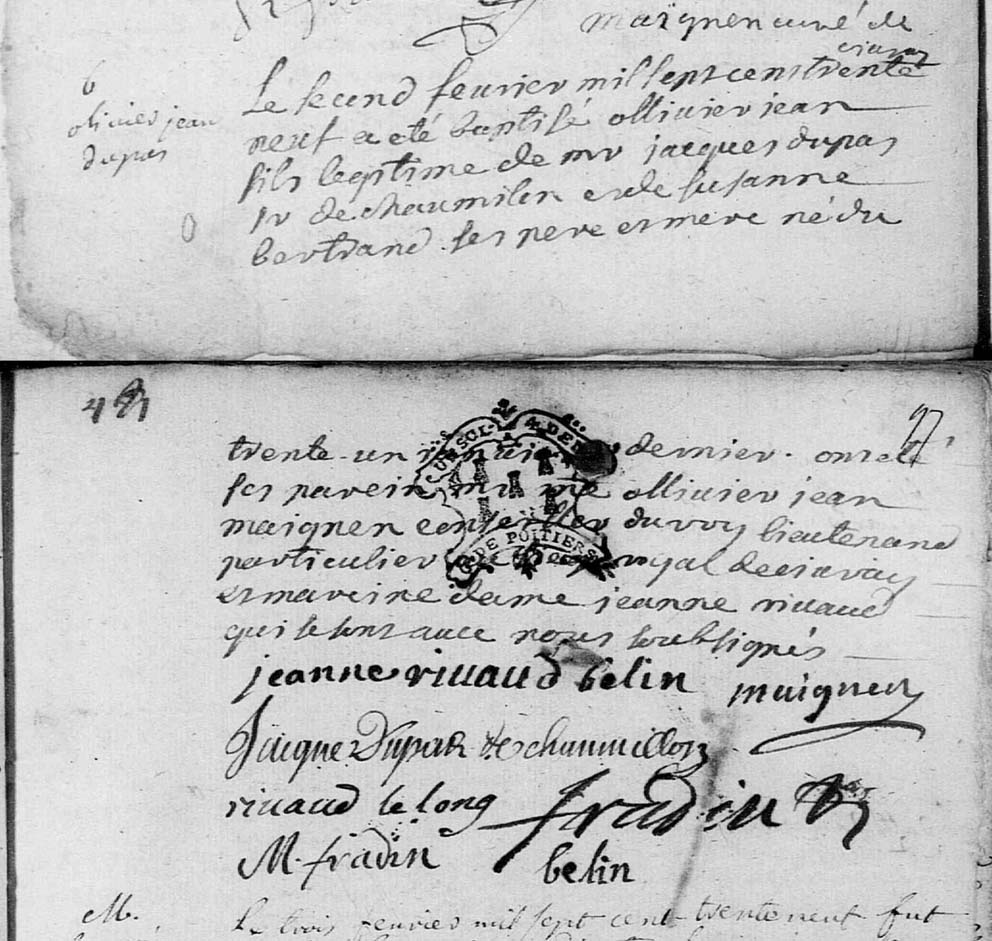 maignen curé de
civray
6
olivier jean
dupas
Le second feuvrier mil sept cens trente
neuf a eté baptisé ollivier jean
fils legitime de mr jacques dupas
sr de chaumilon et de susanne
bertrand ses pere et mere né du
trente-un dernier. ont eté
ses parein mr me ollivier jean
maignen conseiller du roy lieutenand
particulier royal de civray
et mareine dame jeanne rivaud
qui se sont avec nous soubsignés
GN DE POITIERS
jeanne rivaud belin maignen
Jacque Dupas de chaumillon
rivaud le long fradin
M. fradin belin
M. Le trois feuvrier mil sept cent trente neuf fut